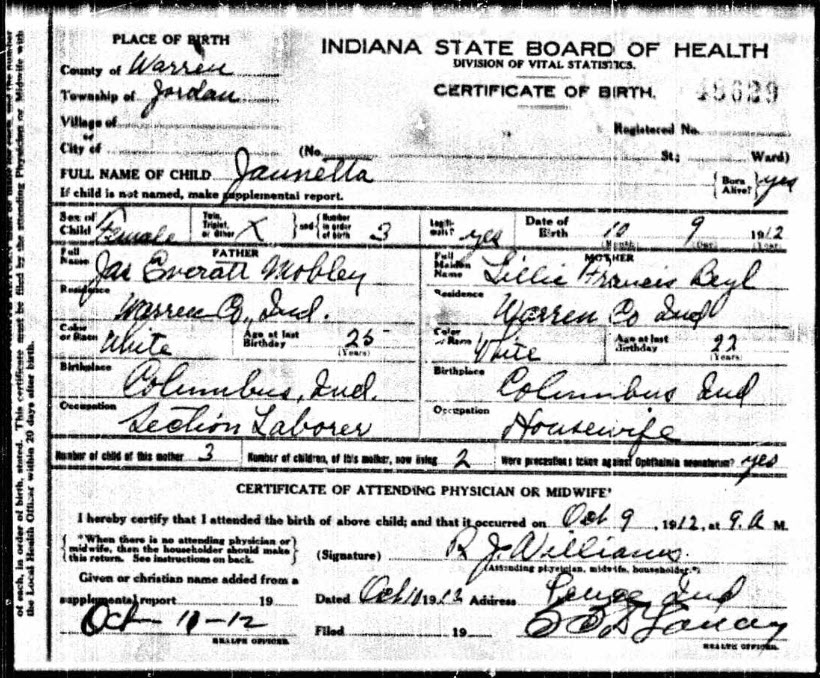 PLACE OF BIRTH
INDIANA STATE BOARD OF HEALTH
DIVISION OF VITAL STATISTICS.
CERTIFICATE OF BIRTH.
County of Warren
Township of Jordan
Village of
or
City of
Registered No.
(No. St; Ward)
FULL NAME OF CHILD Jaunetta { Born Alive? } yes
If child is not named, make supplemental report.
Sex of Child Female Twin, Triplet, or Other X } and { Number in order of birth 3 Legiti-mate? yes Date of Birth 10 9 1912
(Month) (Day) (Year)
FATHER
Full Name Jas Everatt Mobley
MOTHER
Full Maiden Name Lillie Francis Beyl
Residence Warren Co, Ind.
Residence Warren Co Ind
Color or Race White Age at last Birthday 25 (Years)
Color or Race White Age at last Birthday 22 (Years)
Birthplace Columbus, Ind.
Birthplace Columbus Ind
Occupation Section Laborer
Occupation Housewife
Number of child of this mother 3 Number of children, of this mother, now living 2 Were precautions taken against Ophthalmia neonatorum? yes
CERTIFICATE OF ATTENDING PHYSICIAN OR MIDWIFE*
I hereby certify that I attended the birth of above child; and that it occurred on Oct 9, 1912, at 9. A M.
{ *When there is no attending physician or midwife, then the householder should make this return. See instructions on back. }
(Signature) R J. Williams.
(Attending physician, midwife, householder.*)
Given or christian name added from a
supplemental report 19
Oct- 11-12
HEALTH OFFICER.
Dated Oct 11 1912 Address Ind
Filed 19
HEALTH OFFICER.
of each, in order of birth, stated. This certificate must be filed by the attending Physician or Midwife with
the Local Health Officer within 20 days after birth.